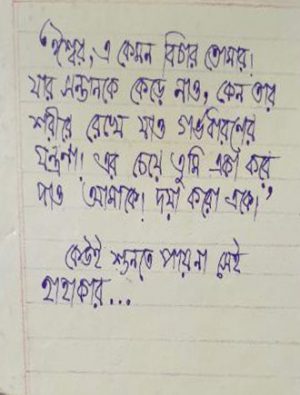 'ঈশ্বর, এ কেমন বিচার তোমার!
যার সন্তানকে কেড়ে নাও, কেন তার
শরীরে রেখে যাও গর্ভধারণের
যন্ত্রণা! এর চেয়ে তুমি একা করে
দাও আমাকে! দয়া করো একে!'
কেউই শুনতে পায়না সেই
হাহাকার...